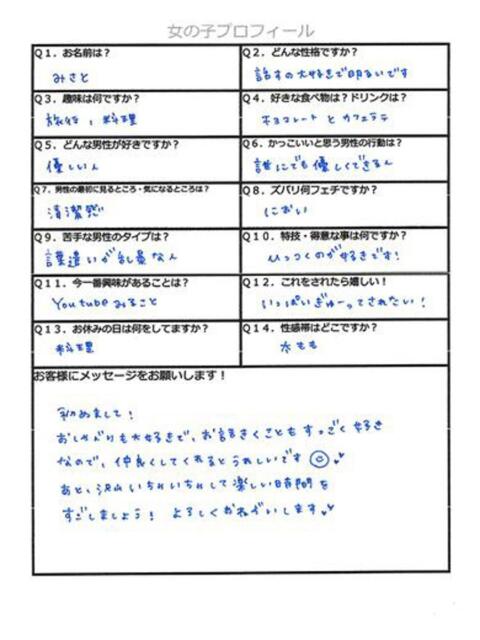 女の子プロフィール
Q1．お名前は？
みさと
Q2．どんな性格ですか？
話すの大好きで明るいです
Q3．趣味は何ですか？
旅行、料理
Q4．好きな食べ物は？ドリンクは？
チョコレート と カフェラテ
Q5．どんな男性が好きですか？
優しい人
Q6．かっこいいと思う男性の行動は？
誰にでも優しくできる人
Q7．男性の最初に見るところ・気になるところは？
清潔感
Q8．ズバリ何フェチですか？
におい
Q9．苦手な男性のタイプは？
言葉遣いが乱暴な人
Q10．特技・得意な事は何ですか？
ひっつくのが好きです！
Q11．今一番興味があることは？
Youtubeみること
Q12．これをされたら嬉しい！
いっぱいぎゅーってされたい！
Q13．お休みの日は何をしてますか？
料理
Q14．性感帯はどこですか？
太もも
お客様にメッセージをお願いします！
初めまして！
おしゃべりも大好きで、お話きくこともすっごく好き
なので、仲良くしてくれるとうれしいです
あと、沢山いちゃいちゃして楽しい時間を
すごしましょう！ よろしくおねがいします